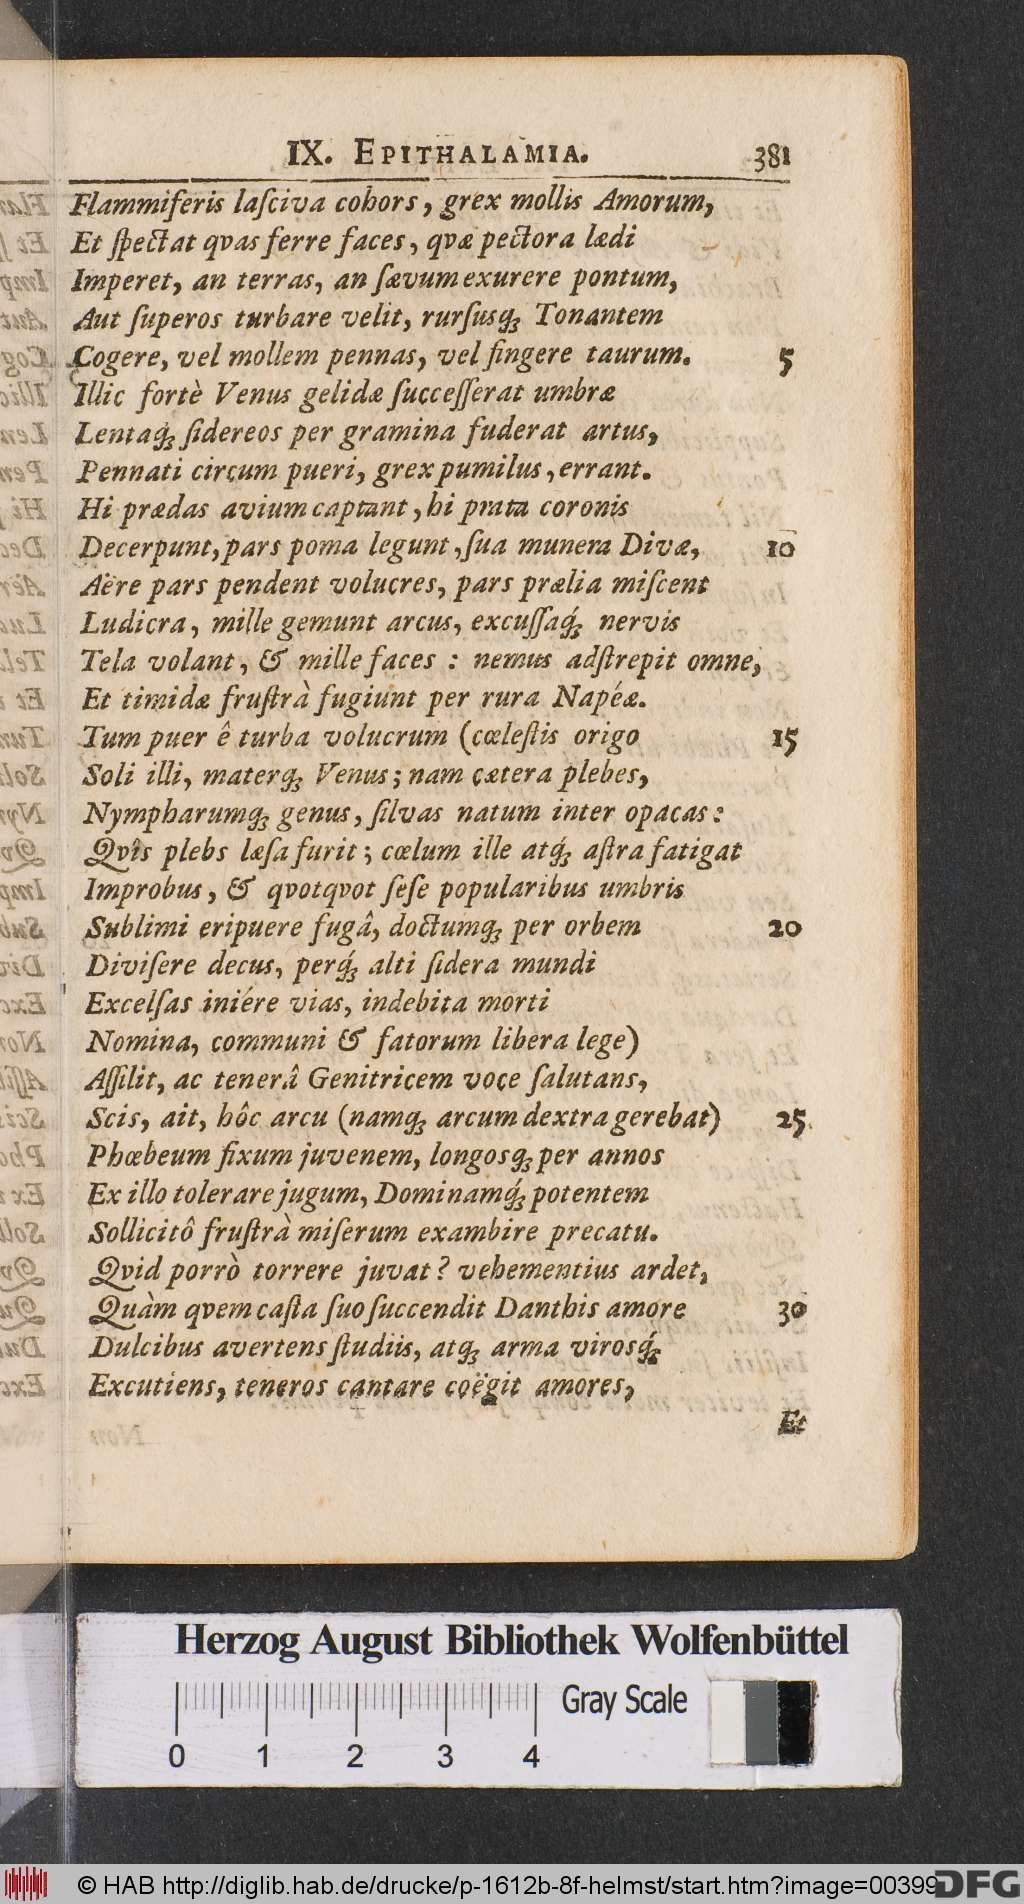 IX. EPITHALAMIA. 381
Flammiferis laſciva cohors, grex mollis Amorum,
Et ſpectat qvas ferre faces, qvæ pectora lædi
Imperet, an terras, an ſævum exurere pontum,
Aut ſuperos turbare velit, rurſusq́; Tonantem
Cogere, vel mollem pennas, vel fingere taurum. 5
Illic fortè Venus gelidæ ſucceſſerat umbræ
Lentaq́; ſidereos per gramina fuderat artus,
Pennati circum pueri, grex pumilus, errant.
Hi prædas avium captant, hi prata coronis
Decerpunt, pars poma legunt, ſua munera Divæ, 10
Aëre pars pendent volucres, pars prælia miſcent
Ludicra, mille gemunt arcus, excuſſaq́; nervis
Tela volant, & mille faces : nemus adſtrepit omne,
Et timidæ fruſtrà fugiunt per rura Napéæ.
Tum puer ê turba volucrum (cœleſtis origo 15
Soli illi, materq; Venus; nam cætera plebes,
Nympharumq; genus, ſilvas natum inter opacas:
Qvîs plebs læſa furit; cœlum ille atq́; aſtra fatigat
Improbus, & qvotqvot ſeſe popularibus umbris
Sublimi eripuere fugâ, doctumq; per orbem 20
Diviſere decus, perq́; alti ſidera mundi
Excelſas iniére vias, indebita morti
Nomina, communi & fatorum libera lege)
Aſſilit, ac tenerâ Genitricem voce ſalutans,
Scis, ait, hôc arcu (namq; arcum dextra gerebat) 25
Phœbeum fixum juvenem, longosq; per annos
Ex illo tolerare jugum, Dominamq́; potentem
Sollicitô fruſtrà miſerum exambire precatu.
Qvid porrò torrere juvat? vehementius ardet,
Quàm qvem caſta ſuo ſuccendit Danthis amore 30
Dulcibus avertens ſtudiis, atq; arma virosq́;
Excutiens, teneros cantare coëgit amores,
Et
Herzog August Bibliothek Wolfenbüttel
Gray Scale
0 1 2 3 4
© HAB http://diglib.hab.de/drucke/p-1612b-8f-helmst/start.htm?image=00399
DFG